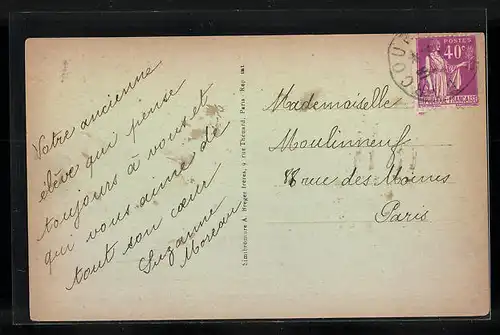 Votre ancienne
élève qui pense
toujours à vous et
qui vous aime de
tout son cœur
Suzanne
Moreau
Simi-Bromure A. Breger frères, 9 rue Thénard, Paris
POSTES
40c
Mademoiselle
Moulinneuf
8 rue des Moines
Paris